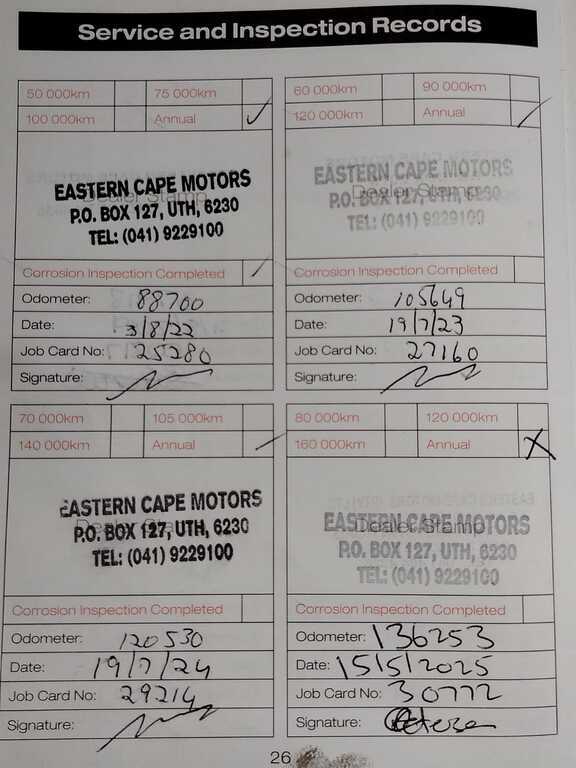 Service and Inspection Records
50 000km 75 000km
100 000km Annual ✓
Dealer Stamp
EASTERN CAPE MOTORS
P.O. BOX 127, UTH, 6230
TEL: (041) 9229100
Corrosion Inspection Completed ✓
Odometer: 88700
Date: 3/8/22
Job Card No: 25280
Signature:
60 000km 90 000km
120 000km Annual ✓
Dealer Stamp
EASTERN CAPE MOTORS
P.O. BOX 127, UTH, 6230
TEL: (041) 9229100
Corrosion Inspection Completed
Odometer: 105649
Date: 19/7/23
Job Card No: 27160
Signature:
70 000km 105 000km
140 000km Annual ✓
Dealer Stamp
EASTERN CAPE MOTORS
P.O. BOX 127, UTH, 6230
TEL: (041) 9229100
Corrosion Inspection Completed
Odometer: 120530
Date: 19/7/24
Job Card No: 29214
Signature:
80 000km 120 000km
160 000km Annual X
Dealer Stamp
EASTERN CAPE MOTORS
P.O. BOX 127, UTH, 6230
TEL: (041) 9229100
Corrosion Inspection Completed
Odometer: 136253
Date: 15/5/2025
Job Card No: 30772
Signature:
26